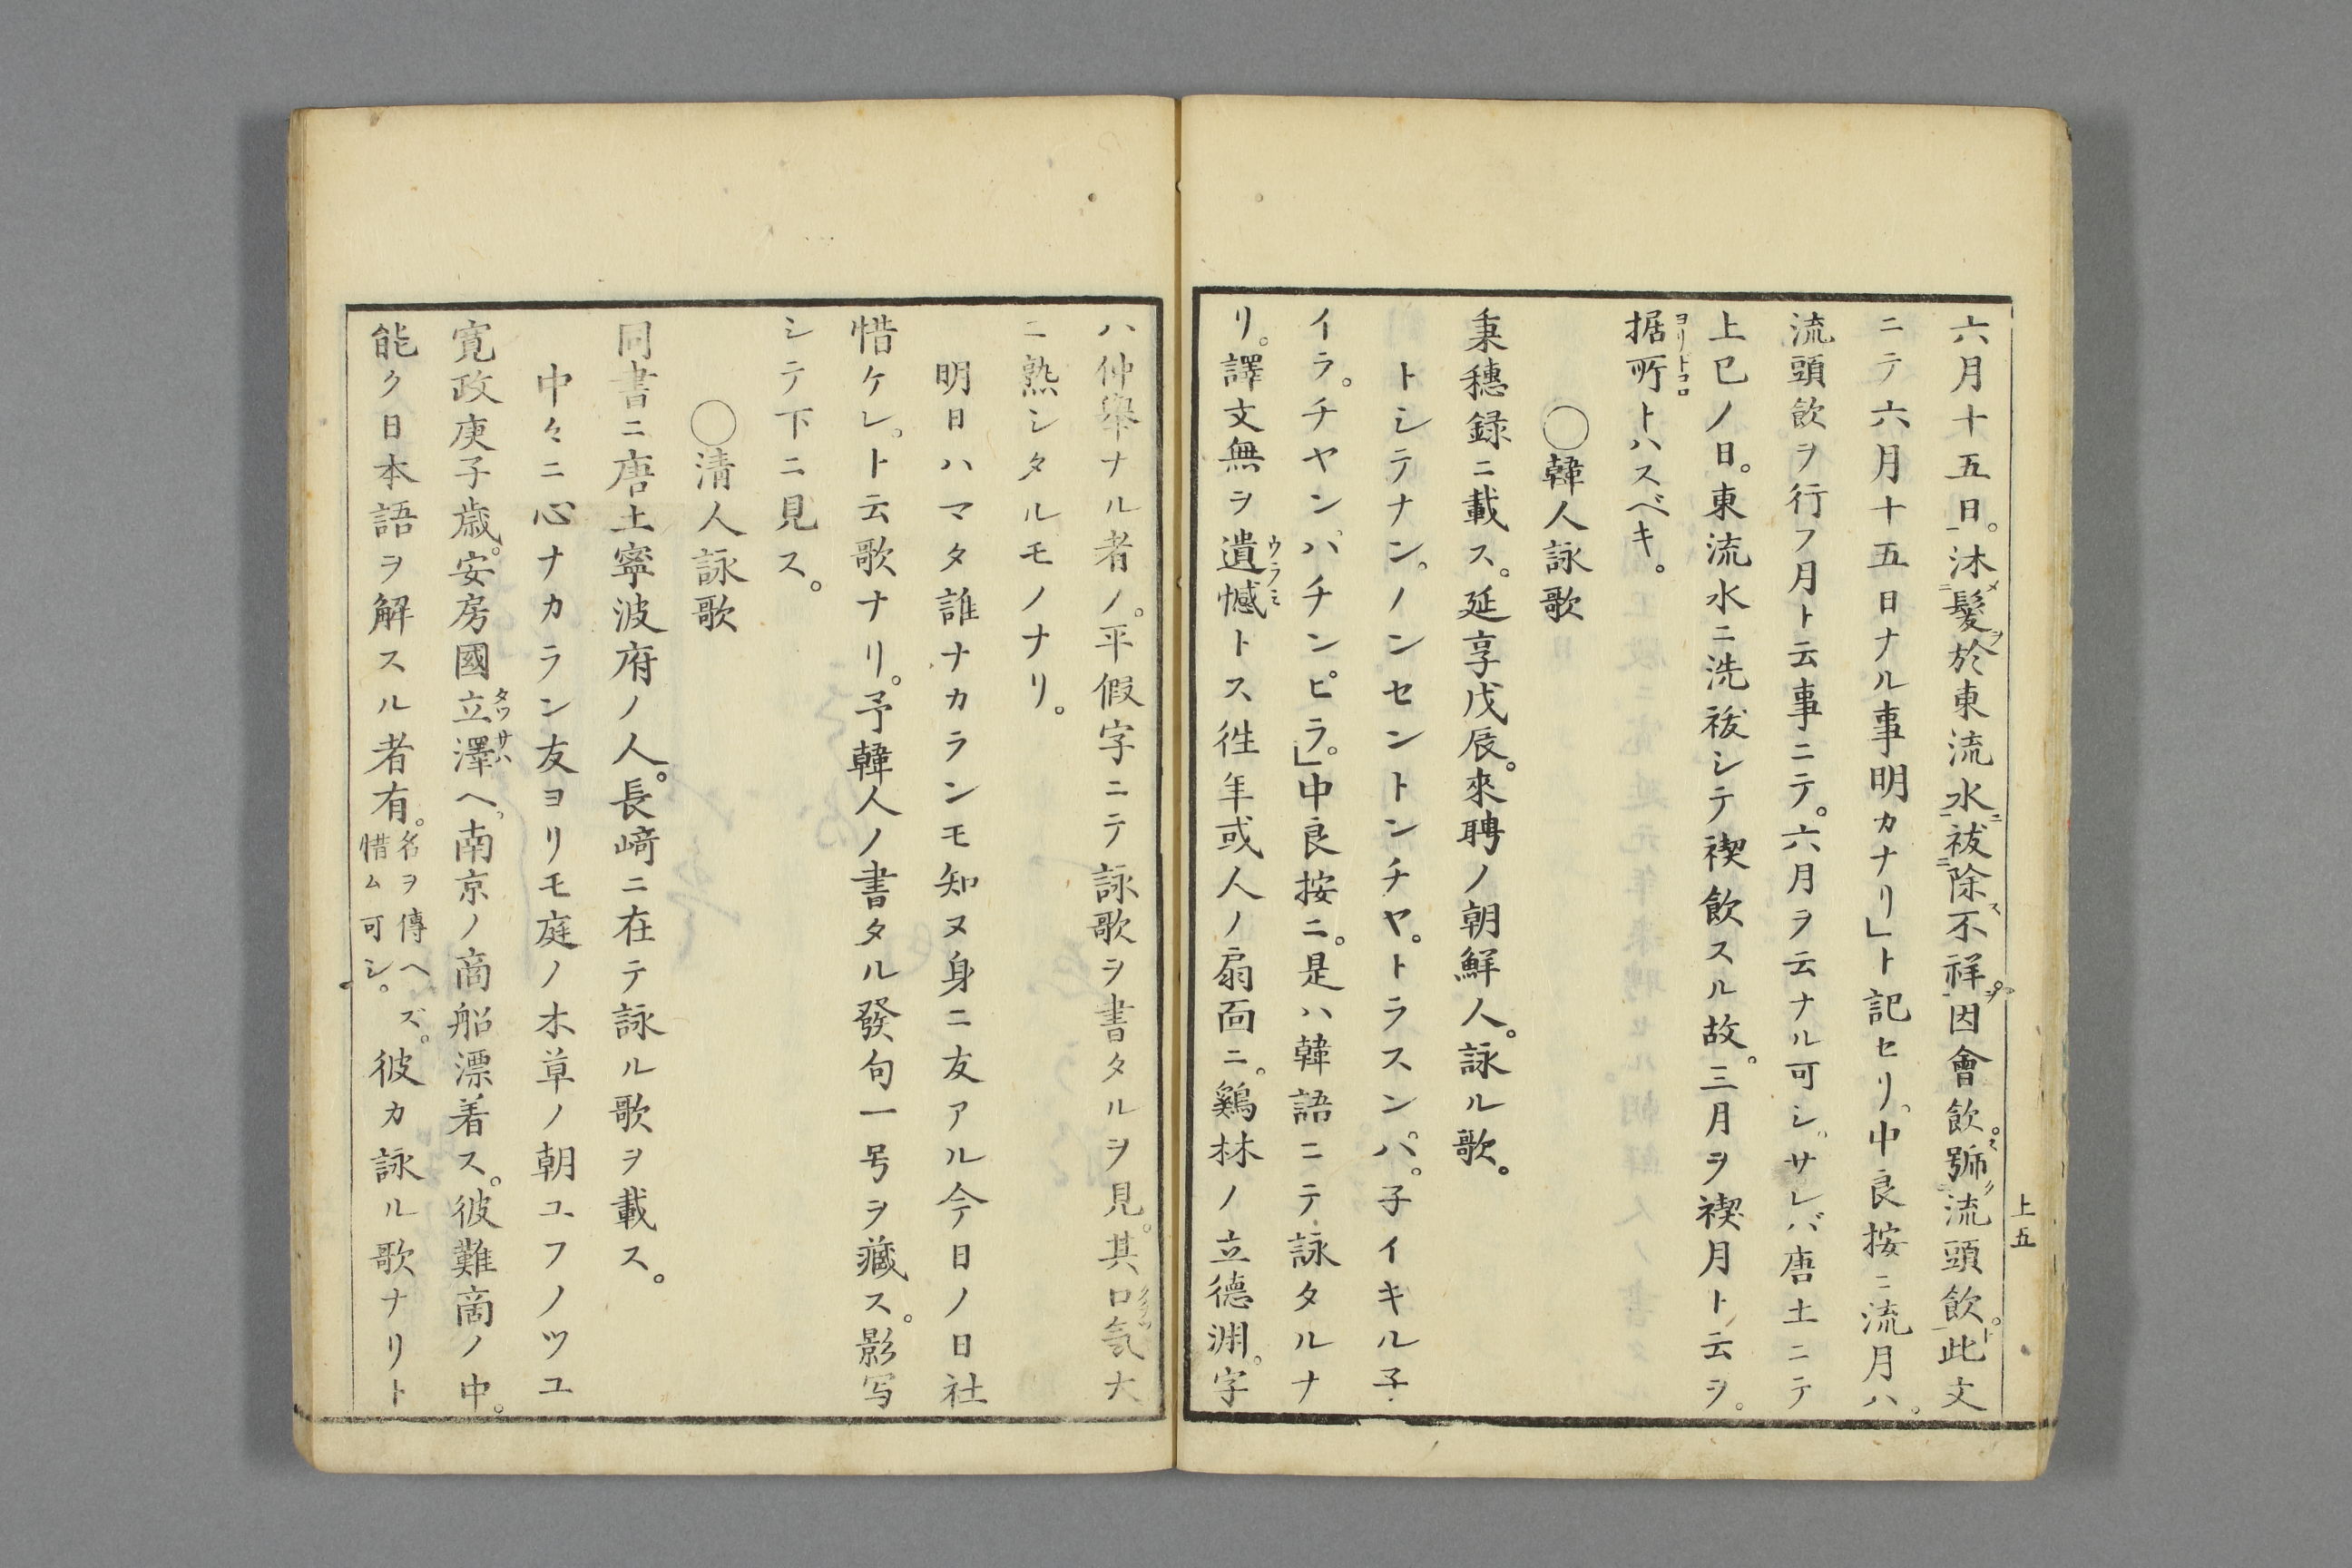 六月十五日。沐髮於東流水祓除不祥因會飲。號流頭飲。此文
ニテ六月十五日ナル事明カナリ」ト記セリ。中良按ニ流月ハ。
流頭飲ヲ行フ月ト云事ニテ。六月ヲ云ナル可シ。サレバ唐土ニテ
上巳ノ日。東流水ニ洗祓シテ禊飲スル故。三月ヲ禊月ト云ヲ。
据所トハスベキ。
ヨリトコロ
〇韓人詠歌
秉穗録ニ載ス。延享戊辰。來聘ノ朝鮮人。詠ル歌。
トシテナン。ノンセントンチヤ。トラスンパ。子イキル子
イラ。チヤンパチンピラ。」中良按ニ。是ハ韓語ニテ詠タルナ
リ。譯文無ヲ遺憾トス徃年或人ノ扇面ニ。鷄林ノ立德渊。字
ウラミ
上五
ハ仲舉ナル者ノ。平假字ニテ詠歌ヲ書タルヲ見。其口氣大
ニ熟シタルモノナリ。
明日ハマタ誰ナカランモ知ヌ身ニ友アル今日ノ日社
惜ケレ。ト云歌ナリ。予韓人ノ書タル發句一号ヲ藏ス。影写
シテ下ニ見ス。
〇清人詠歌
同書ニ唐土寧波府ノ人。長﨑ニ在テ詠ル歌ヲ載ス。
中々ニ心ナカラン友ヨリモ庭ノ木草ノ朝ユフノツユ
寛政庚子歳。安房國立澤ヘ。南京ノ商船漂着ス。彼難商ノ中。
能ク日本語ヲ解スル者有。名ヲ傳ヘズ。惜ム可シ。彼カ詠ル歌ナリト